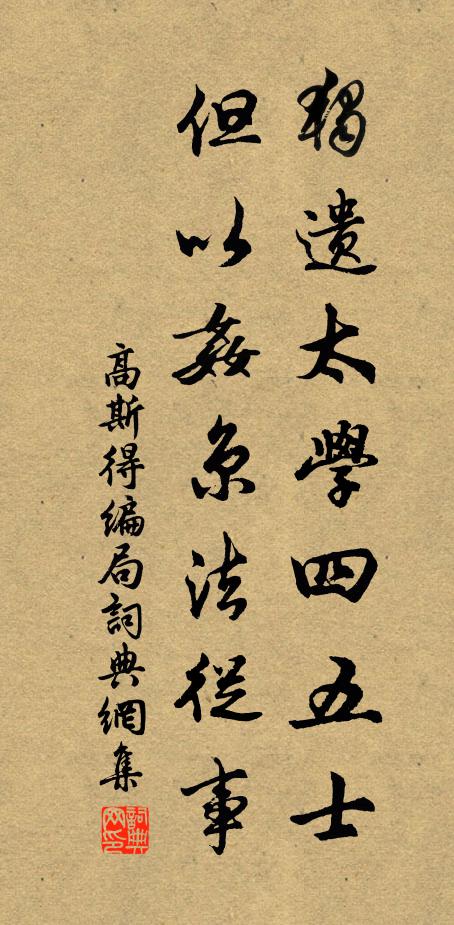 獨遺太學四五士
但以姦京法從事
高斯得編局詞典網集
詞典網印